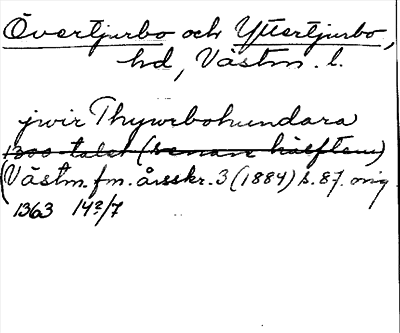 Övertjurbo och Yttertjurbo,
hd, Västm. l.
jwir Thywrbohundara
1300-talet (senare hälften)
(Västm. fm. årsskr. 3 (1884) s. 87. orig.
1363 14 2/7